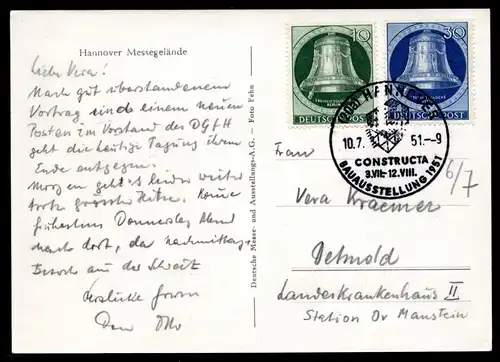 Hannover Messegelände
Liebe Vera!
Nach gut überstandenem
Vortrag und einem neuen
Posten im Vorstand der DGfH
geht die heutige Tagung ihrem
Ende entgegen.
Morgen geht's leider weiter
trotz grosser Hitze. Komme
frühestens Donnerstag Abend
dort, da nachmittags
Besuch aus der Schweiz
Herzliche
Dein Otto
Deutsche Messe- und Ausstellungs-A.G. – Foto Fehn
10
FREIHEITSGLOCKE
BERLIN
DEUTSCHE POST
30
DEUTSCHE POST
HANNOVER
10.7. 51.–9
CONSTRUCTA
3.VII.–12.VIII.
BAUAUSSTELLUNG 1951
6/7
Frau
Vera Kraemer
Detmold
Landeskrankenhaus II
Station Dr Manstein